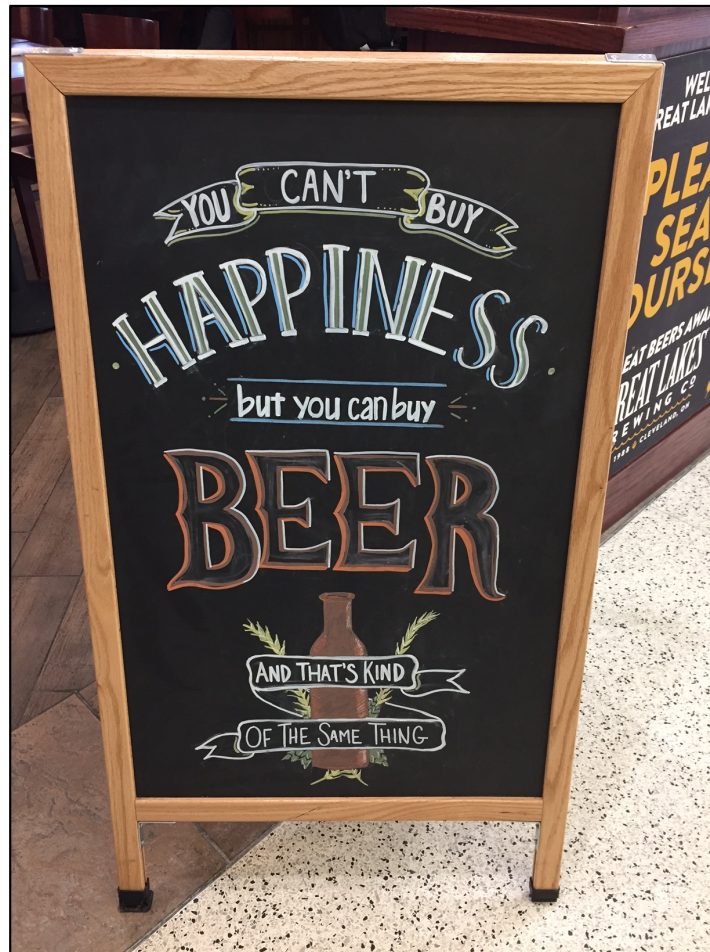 YOU CAN'T BUY
HAPPINESS
but you can buy
BEER
AND THAT'S KIND
OF THE SAME THING
WEL
REAT LA
PLEA
SEA
OURS
EAT BEERS AWA
REAT LAKES
REWING CO
1988 CLEVELAND, OH